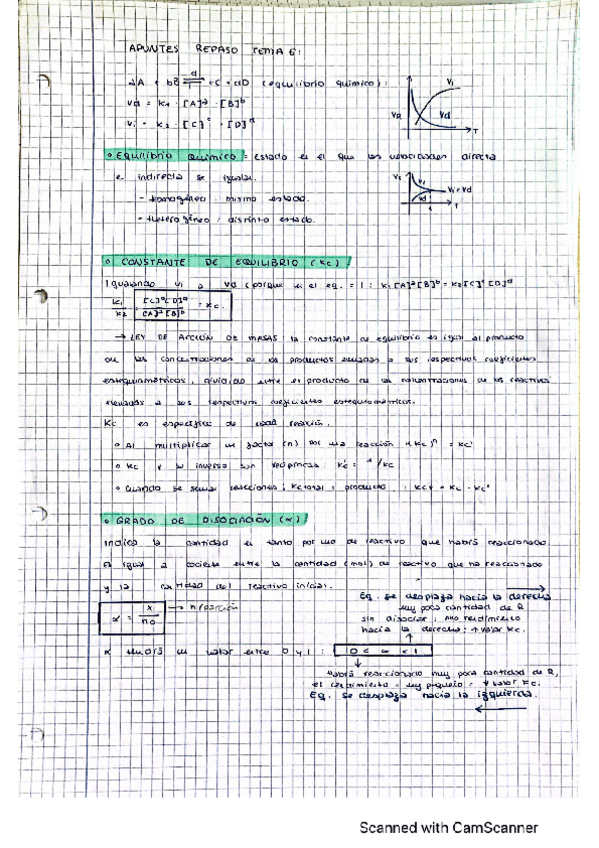 APUNTES REPASO TEMA 6:
aA + bB ⇌ cC + dD (equilibrio químico):
Vd = K1 · [A]a · [B]b
Vi = K2 · [C]c · [D]d
VR Vi Vd T
• Equilibrio químico = estado en el que las velocidades directa
e indirecta se igualan.
- Homogéneo: mismo estado.
- Heterogéneo: distinto estado.
Vi Vd Vi=Vd T
• CONSTANTE DE EQUILIBRIO (Kc):
Igualando Vi a Vd (porque en el eq. = ) : K1[A]a[B]b = K2[C]c[D]d
K1/K2 = [C]c[D]d / [A]a[B]b = Kc.
→ LEY DE ACCIÓN DE MASAS la constante de equilibrio es igual al producto
de las concentraciones de los productos elevadas a sus respectivos coeficientes
estequiométricos, dividido entre el producto de las concentraciones de los reactivos
elevadas a sus respectivos coeficientes estequiométricos.
Kc es específica de cada reacción.
• Al multiplicar un factor (n) por una reacción (Kc)n = Kc'
• Kc y su inversa son recíprocas: Kc' = 1/Kc
• Cuando se suman reacciones; Kc total = producto : KcT = Kc · Kc'
• GRADO DE DISOCIACIÓN (α):
Indica la cantidad en tanto por uno de reactivo que habrá reaccionado
Es igual a cociente entre la cantidad (mol) de reactivo que ha reaccionado
y la cantidad del reactivo inicial.
α = x/no → n
Eq. se desplaza hacia la derecha
muy poca cantidad de R
sin disociar; rendimiento
hacia la derecha; ↑ valor Kc.
α tendrá un valor entre 0 y 1: 0 < α < 1
Habrá reaccionado muy poca cantidad de R,
el rendimiento muy pequeño; ↓ valor Kc.
Eq. se desplaza hacia la izquierda.
Scanned with CamScanner